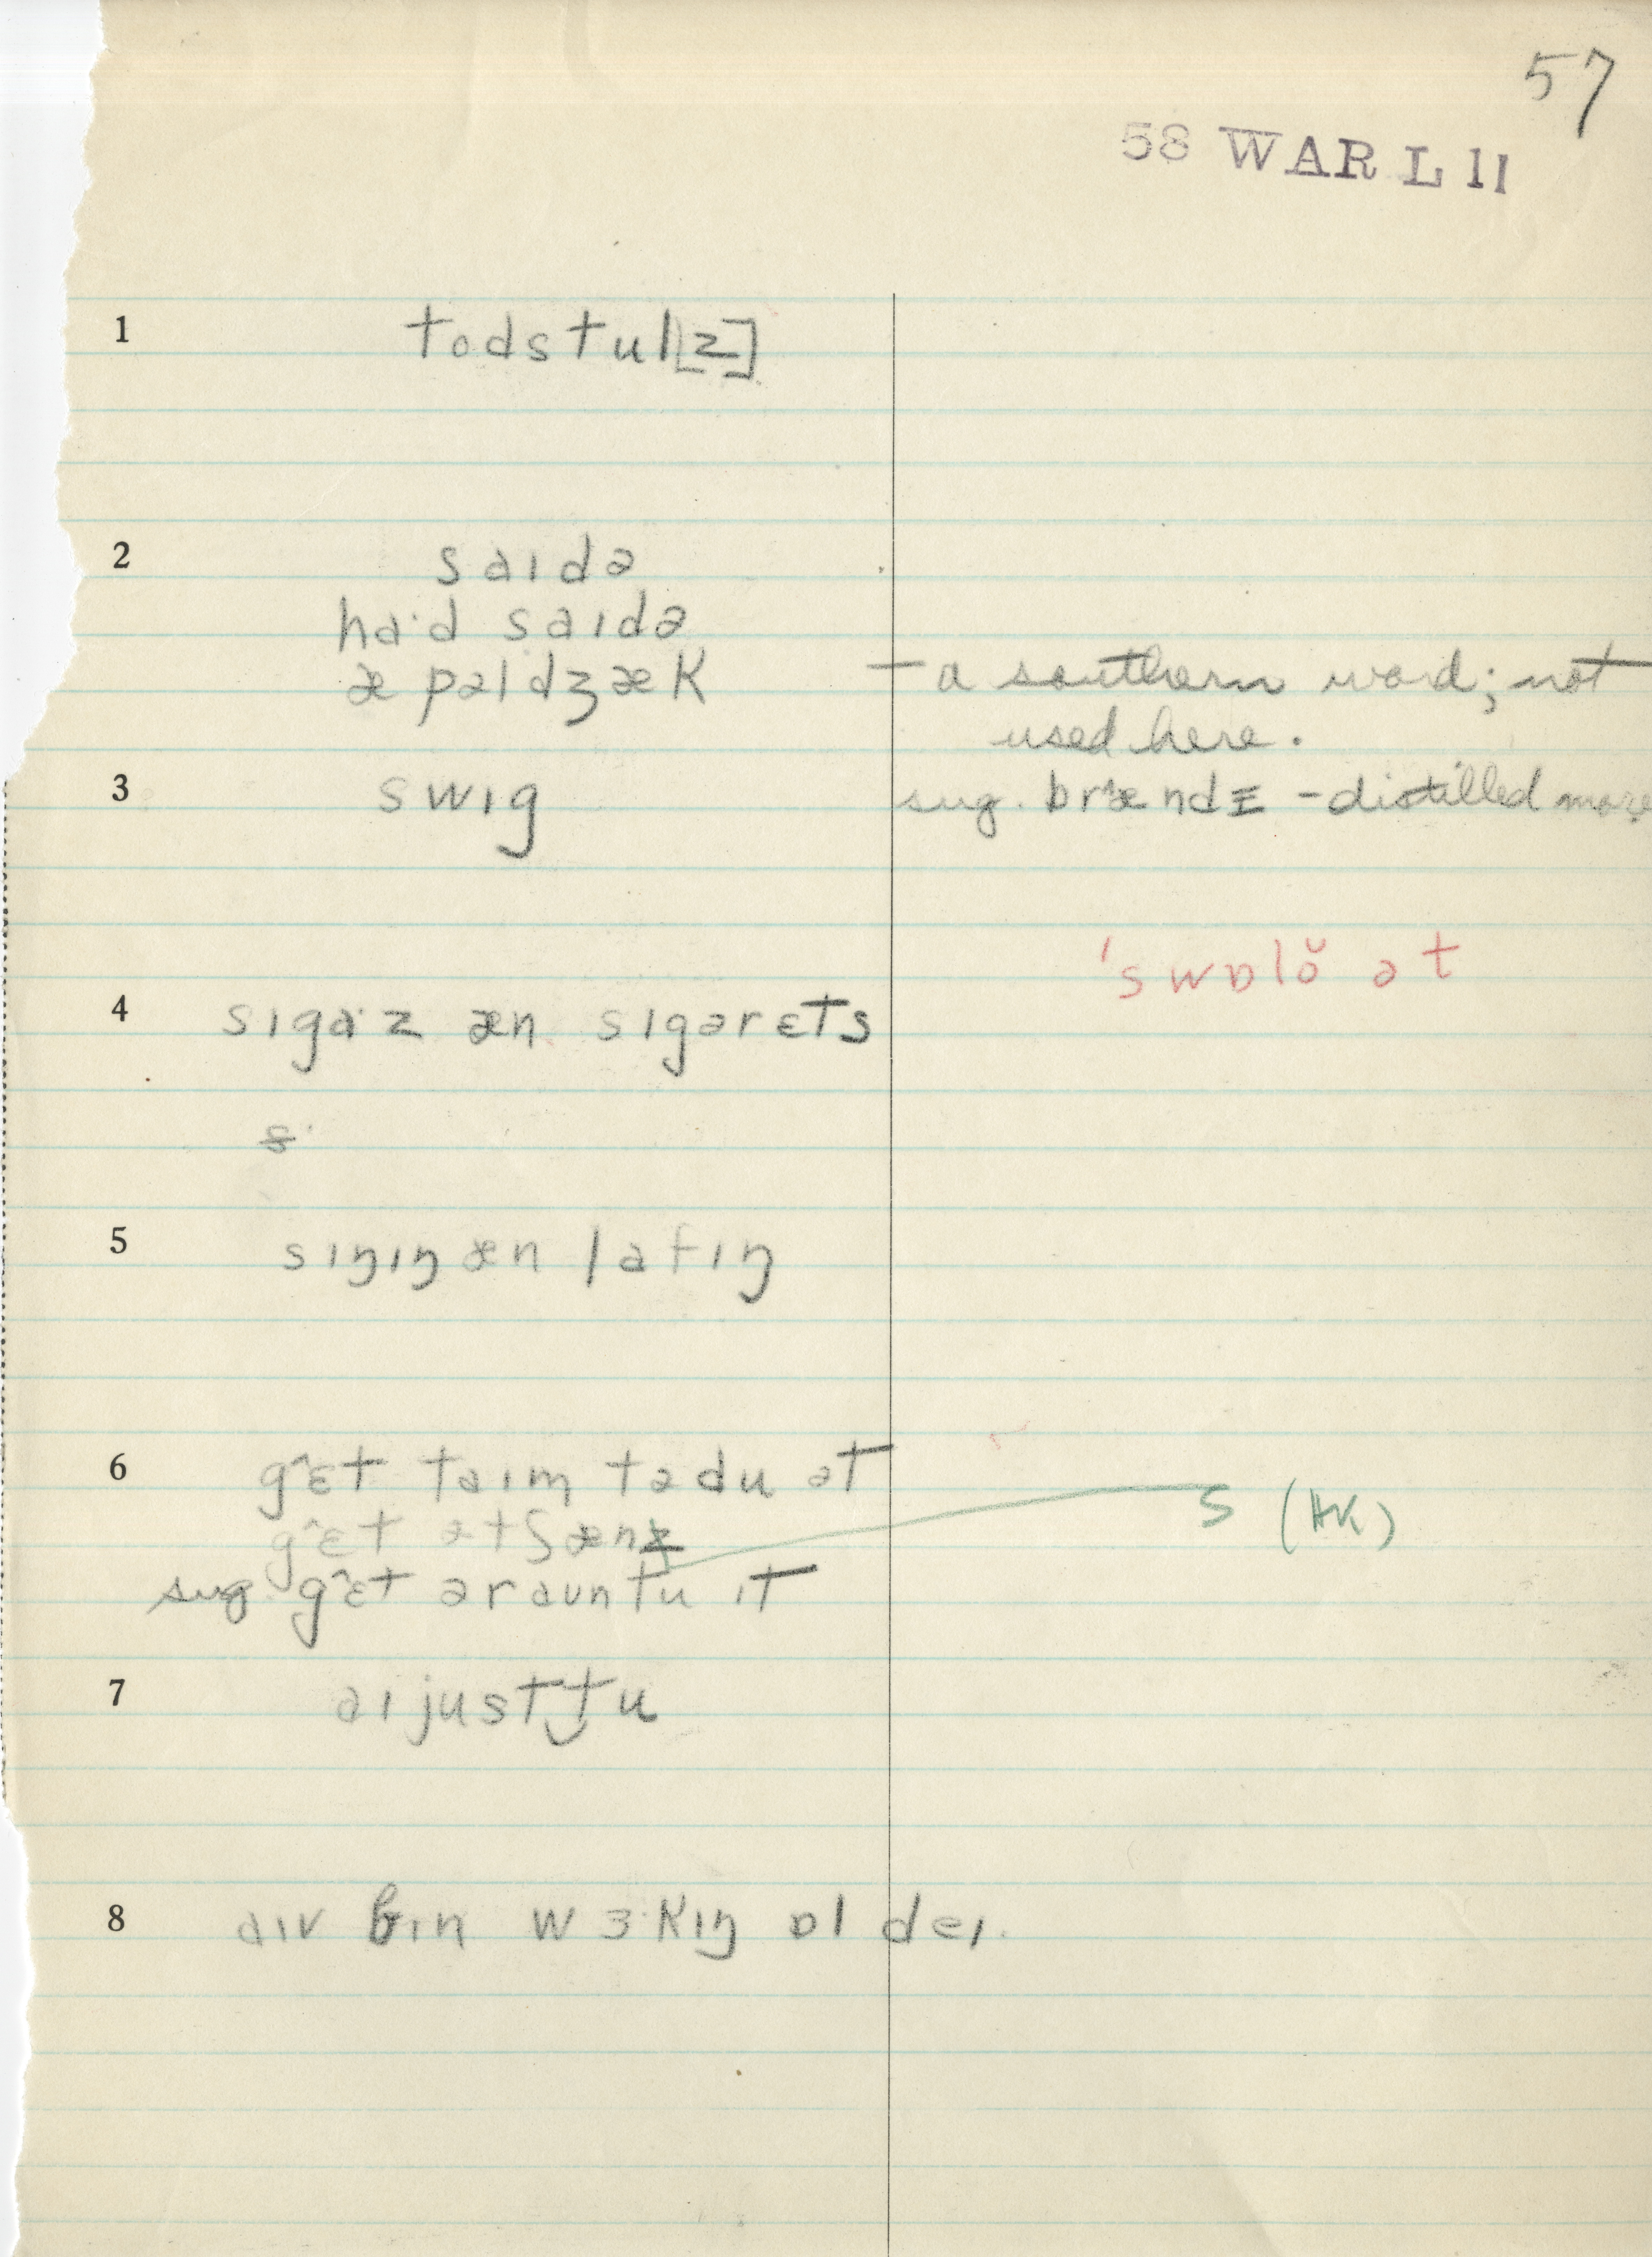 57
58 WAR L 11
1 todstul[z]
2 saɪdə
ha·d saɪdə
æpəldʒæk – a southern word; not
used here.
3 swɪg sug. brændɪ – distilled more
'swɒlŏ ət
4 sɪga·z æn sɪgərɛts
5 sɪŋɪŋ æn lafɪŋ
6 g^ɛt taɪm tədu ət
g^ɛt ətʃænz s (HK)
sug. g^ɛt əraʊntu ɪt
7 aɪ justtu
8 aɪv bɪn wɜ·kɪŋ ɒl deɪ.